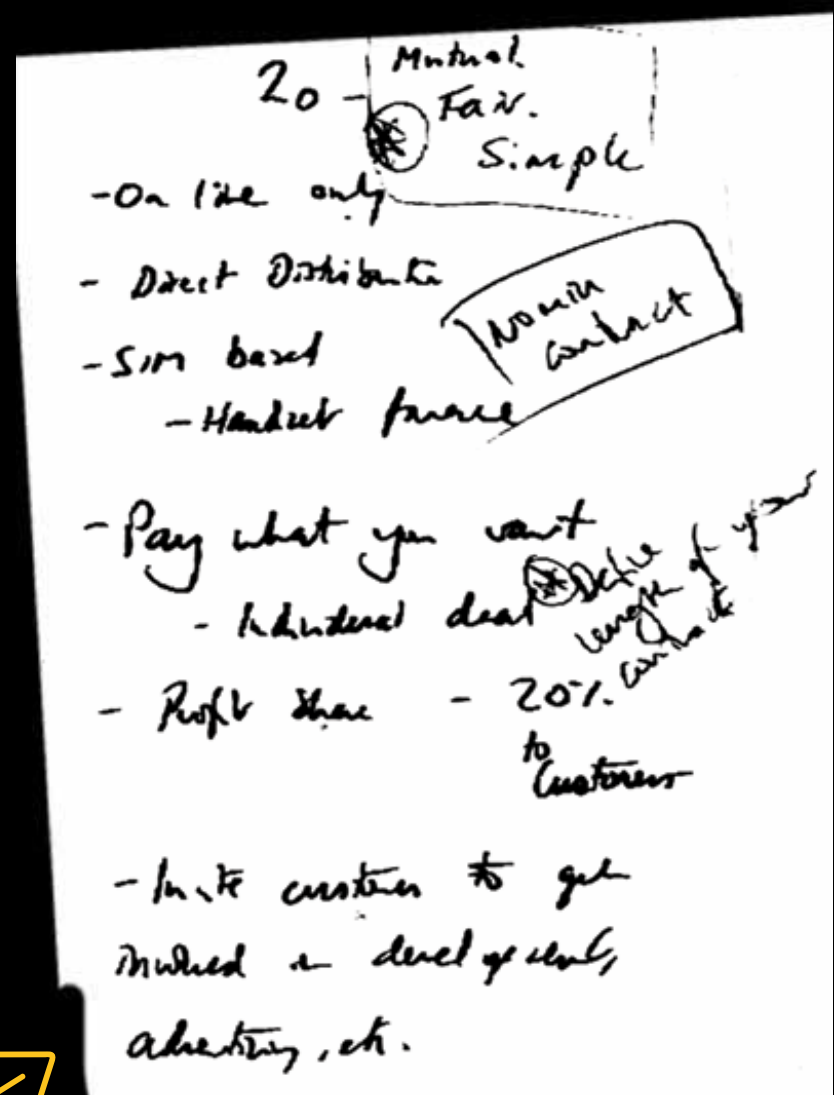 20 - Mutual
Fair.
Simple
- On line only
- Direct Distribution
No min
contract
- SIM based
- Handset finance
- Pay what you want
- Individual deal
Define
length of your
contract
- Profit share - 20%
to
Customers
- Invite customers to get
involved in development,
advertising, etc.